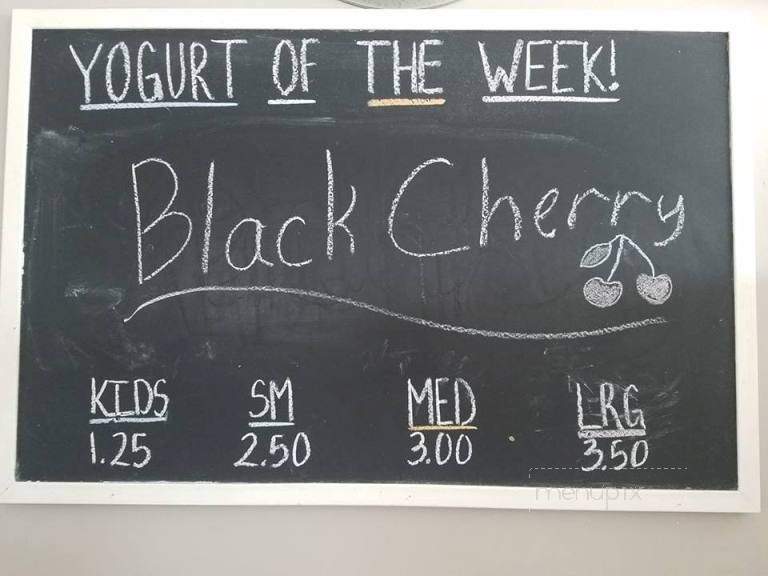 YOGURT OF THE WEEK!
Black Cherry
KIDS SM MED LRG
1.25 2.50 3.00 3.50
menupix